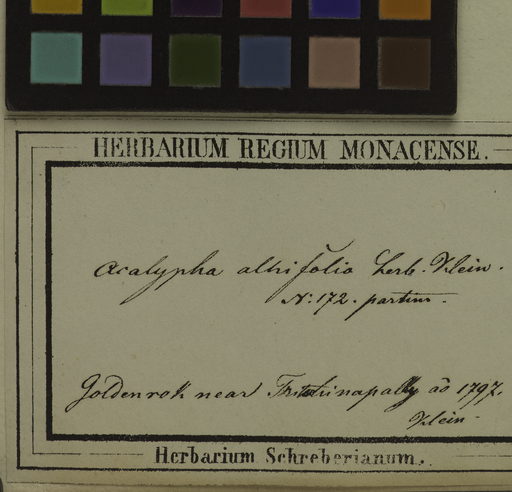 HERBARIUM REGIUM MONACENSE.
Acalypha alnifolia herb. Klein.
N: 172. partim.
Goldenrok near Tritchinapally aō 1797.
Klein.
Herbarium Schreberianum.